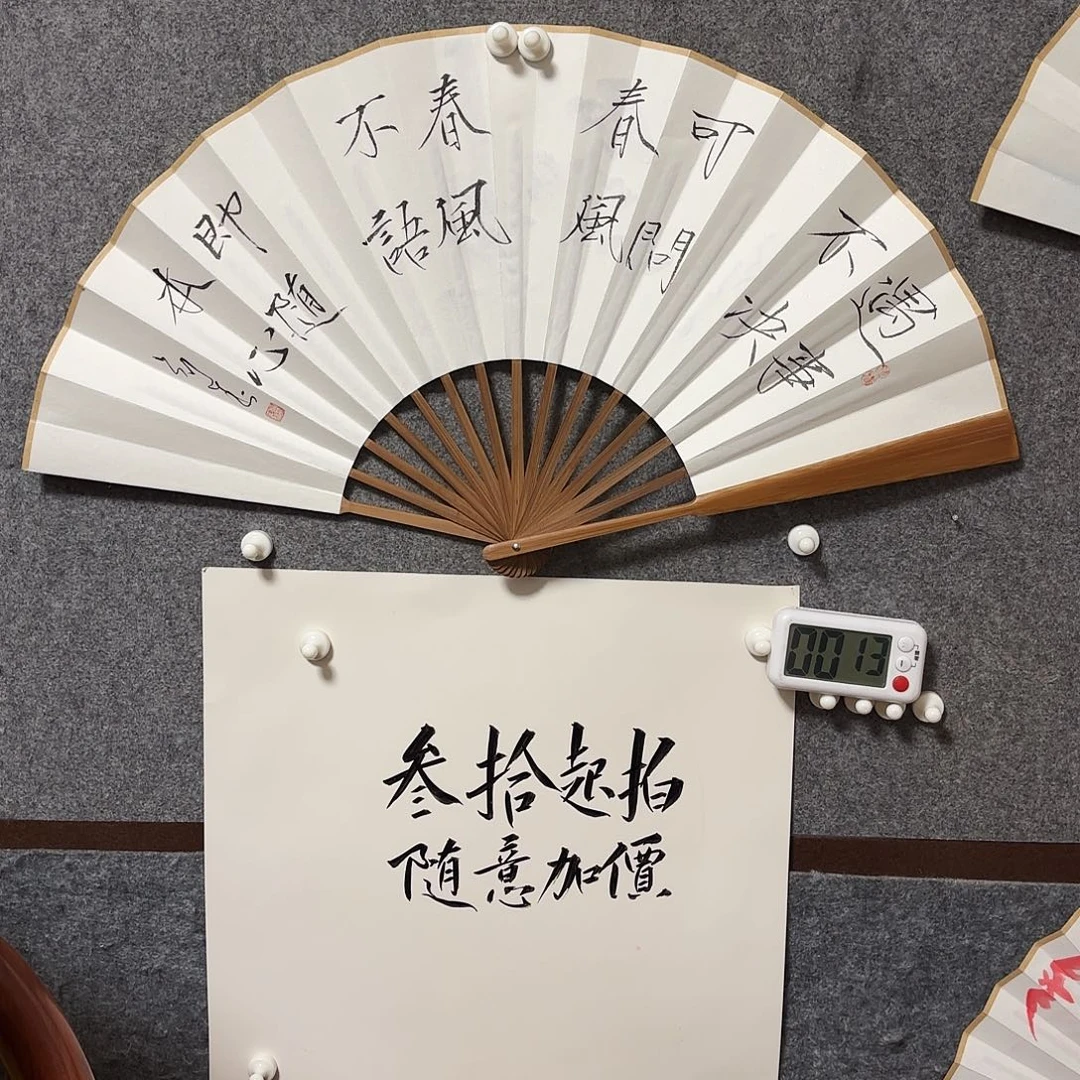 遇事
不決
可問
春風
春風
不語
即隨
本心
叁拾起拍
隨意加價
0013